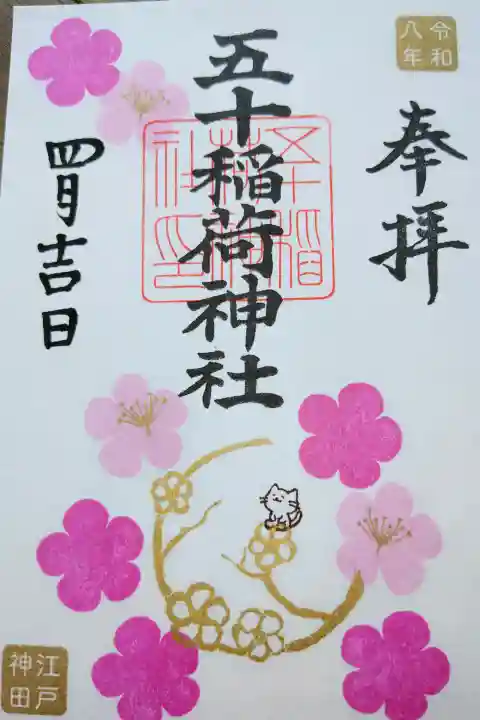 令和
八年
奉拝
五十稲荷神社
五十稲
荷神
社印
四月吉日
江戸
神田